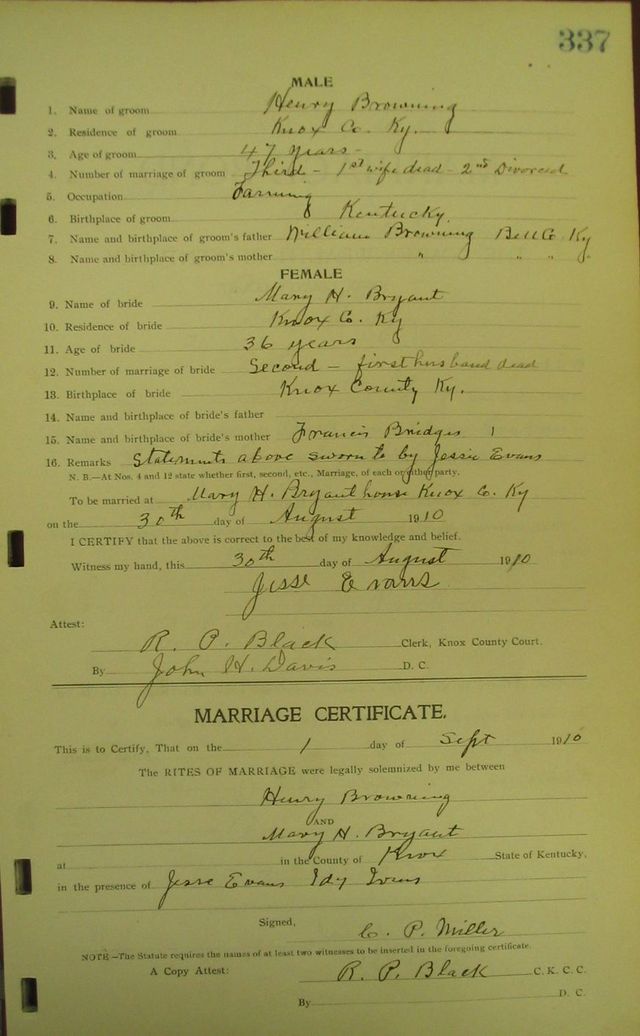 337
MALE
1. Name of groom Henry Browning
2. Residence of groom Knox Co. Ky.
3. Age of groom 47 years -
4. Number of marriage of groom Third - 1st wife dead - 2nd Divorced
5. Occupation Farming
6. Birthplace of groom Kentucky.
7. Name and birthplace of groom's father William Browning Bell Co Ky
8. Name and birthplace of groom's mother " " " "
FEMALE
9. Name of bride Mary H. Bryant
10. Residence of bride Knox Co. Ky
11. Age of bride 36 years
12. Number of marriage of bride Second - first husband dead
13. Birthplace of bride Knox County Ky.
14. Name and birthplace of bride's father
15. Name and birthplace of bride's mother Francis Bridges
16. Remarks Statements above sworn to by Jessie Evans
N. B.—At Nos. 4 and 12 state whether first, second, etc., Marriage, of each or either party.
To be married at Mary H. Bryant house Knox Co. Ky
on the 30th day of August 1910
I CERTIFY that the above is correct to the best of my knowledge and belief.
Witness my hand, this 30th day of August 1910
Jesse Evans
Attest:
R. P. Black Clerk, Knox County Court.
By John H. Davis D. C.
MARRIAGE CERTIFICATE.
This is to Certify, That on the 1 day of Sept 1910
The RITES OF MARRIAGE were legally solemnized by me between
Henry Browning
AND
Mary H. Bryant
at in the County of Knox State of Kentucky,
in the presence of Jesse Evans Idy Ivens
Signed, C. P. Miller
NOTE—The Statute requires the names of at least two witnesses to be inserted in the foregoing certificate.
A Copy Attest: R. P. Black C. K. C. C.
By D. C.